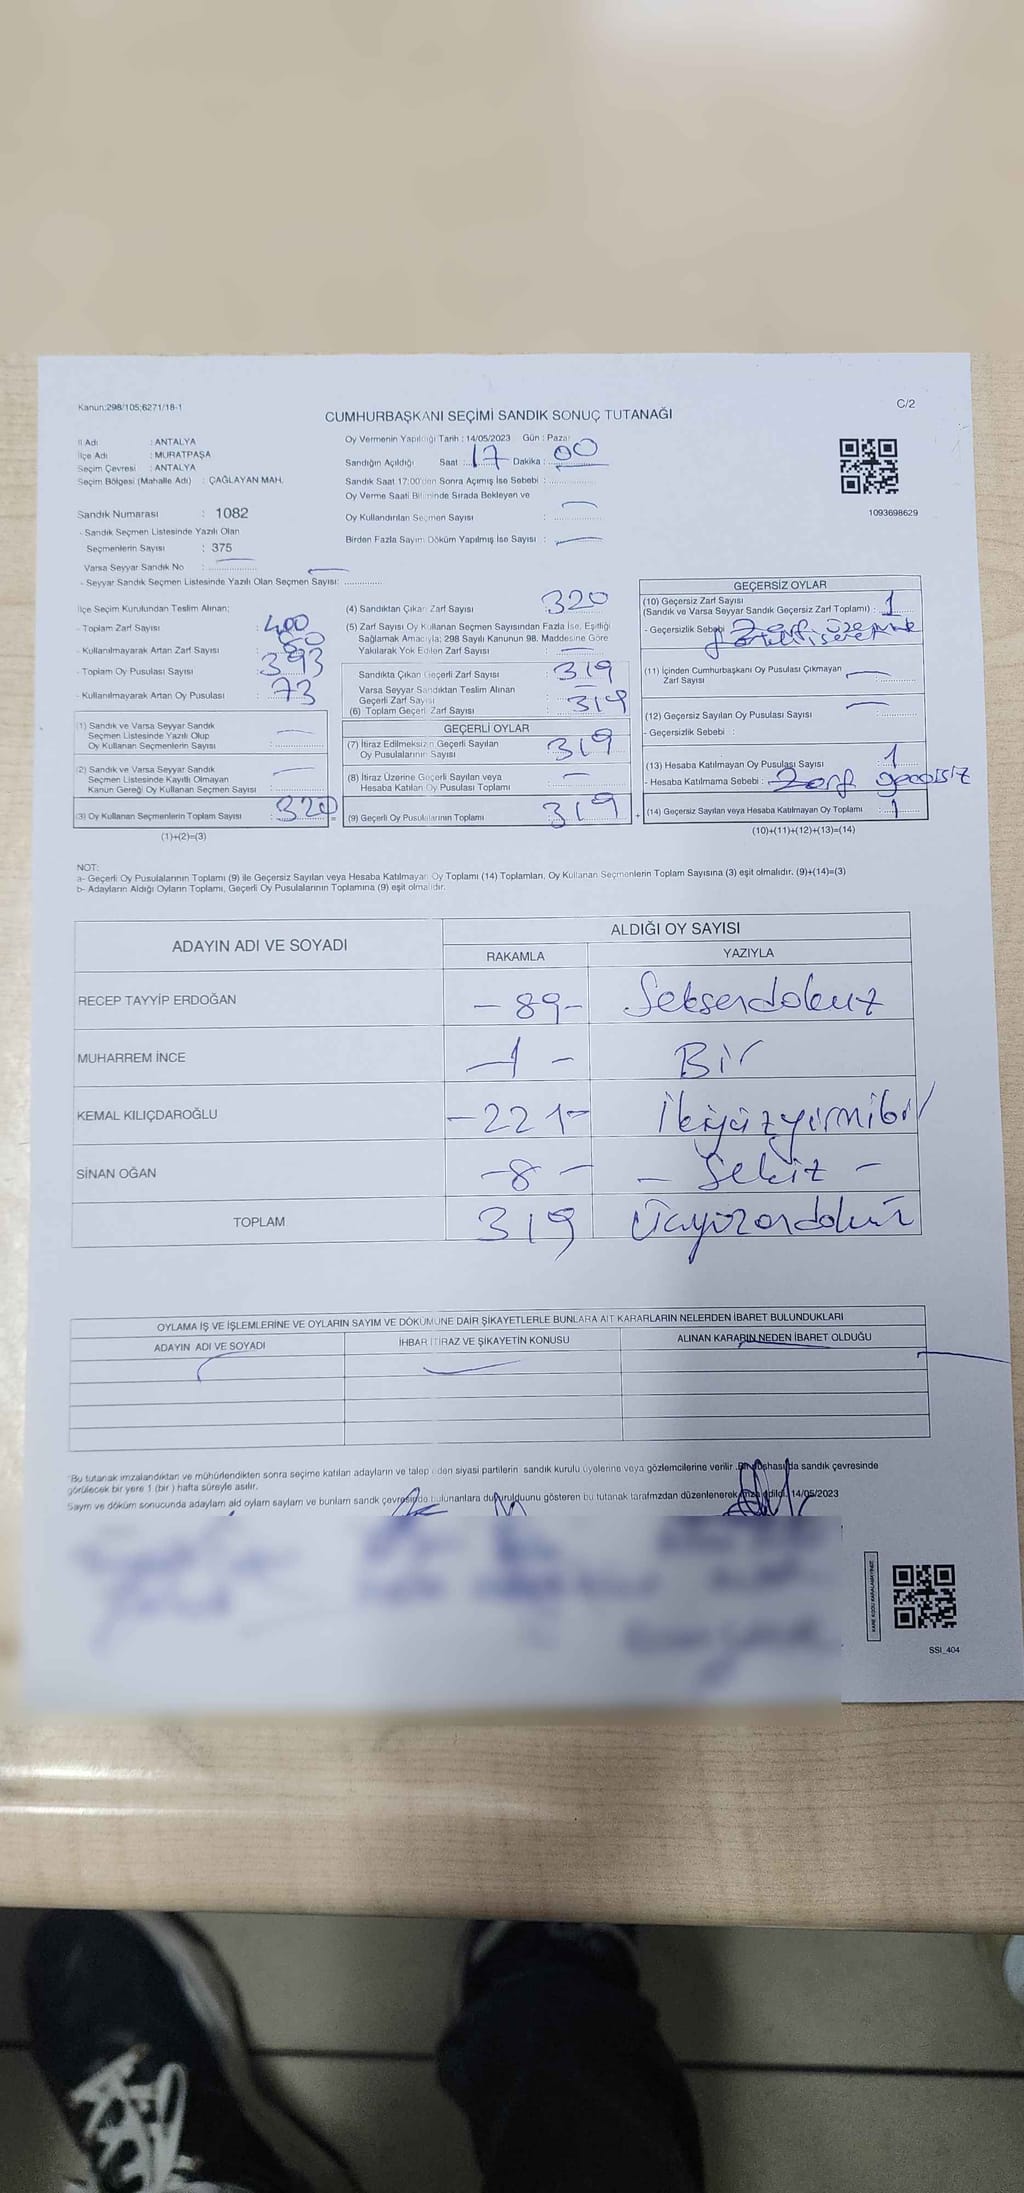 Kanun:298/105;6271/18-1
C/2
CUMHURBAŞKANI SEÇİMİ SANDIK SONUÇ TUTANAĞI
İl Adı : ANTALYA
İlçe Adı : MURATPAŞA
Seçim Çevresi : ANTALYA
Seçim Bölgesi (Mahalle Adı) : ÇAĞLAYAN MAH.
Sandık Numarası : 1082
- Sandık Seçmen Listesinde Yazılı Olan
Seçmenlerin Sayısı : 375
Varsa Seyyar Sandık No :
- Seyyar Sandık Seçmen Listesinde Yazılı Olan Seçmen Sayısı:
Oy Vermenin Yapıldığı Tarih : 14/05/2023 Gün : Pazar
Sandığın Açıldığı Saat : 17 Dakika : 00
Sandık Saat 17:00'den Sonra Açımış İse Sebebi :
Oy Verme Saati Bitiminde Sırada Bekleyen ve
Oy Kullandırılan Seçmen Sayısı :
Birden Fazla Sayım Döküm Yapılmış İse Sayısı :
1093698629
İlçe Seçim Kurulundan Teslim Alınan;
- Toplam Zarf Sayısı : 400
- Kullanılmayarak Artan Zarf Sayısı : 80
- Toplam Oy Pusulası Sayısı : 393
- Kullanılmayarak Artan Oy Pusulası : 73
(1) Sandık ve Varsa Seyyar Sandık
Seçmen Listesinde Yazılı Olup
Oy Kullanan Seçmenlerin Sayısı :
(2) Sandık ve Varsa Seyyar Sandık
Seçmen Listesinde Kayıtlı Olmayan
Kanun Gereği Oy Kullanan Seçmen Sayısı :
(3) Oy Kullanan Seçmenlerin Toplam Sayısı : 320
(1)+(2)=(3)
(4) Sandıktan Çıkan Zarf Sayısı : 320
(5) Zarf Sayısı Oy Kullanan Seçmen Sayısından Fazla İse, Eşitliği
Sağlamak Amacıyla; 298 Sayılı Kanunun 98. Maddesine Göre
Yakılarak Yok Edilen Zarf Sayısı :
Sandıkta Çıkan Geçerli Zarf Sayısı : 319
Varsa Seyyar Sandıktan Teslim Alınan
Geçerli Zarf Sayısı :
(6) Toplam Geçerli Zarf Sayısı : 319
GEÇERLİ OYLAR
(7) İtiraz Edilmeksizin Geçerli Sayılan
Oy Pusulalarının Sayısı : 319
(8) İtiraz Üzerine Geçerli Sayılan veya
Hesaba Katılan Oy Pusulası Toplamı :
(9) Geçerli Oy Pusulalarının Toplamı : 319
GEÇERSİZ OYLAR
(10) Geçersiz Zarf Sayısı
(Sandık ve Varsa Seyyar Sandık Geçersiz Zarf Toplamı) : 1
- Geçersizlik Sebebi : Zarf üzerine
(11) İçinden Cumhurbaşkanı Oy Pusulası Çıkmayan
Zarf Sayısı :
(12) Geçersiz Sayılan Oy Pusulası Sayısı :
- Geçersizlik Sebebi :
(13) Hesaba Katılmayan Oy Pusulası Sayısı : 1
- Hesaba Katılmama Sebebi : Zarf geçersiz
(14) Geçersiz Sayılan veya Hesaba Katılmayan Oy Toplamı : 1
(10)+(11)+(12)+(13)=(14)
NOT:
a- Geçerli Oy Pusulalarının Toplamı (9) ile Geçersiz Sayılan veya Hesaba Katılmayan Oy Toplamı (14) Toplamları, Oy Kullanan Seçmenlerin Toplam Sayısına (3) eşit olmalıdır. (9)+(14)=(3)
b- Adayların Aldığı Oyların Toplamı, Geçerli Oy Pusulalarının Toplamına (9) eşit olmalıdır.
ADAYIN ADI VE SOYADI
ALDIĞI OY SAYISI
RAKAMLA YAZIYLA
RECEP TAYYİP ERDOĞAN - 89 - Seksendokuz
MUHARREM İNCE - 1 - Bir
KEMAL KILIÇDAROĞLU - 221 - İkiyüzyirmibir
SİNAN OĞAN - 8 - - Sekiz -
TOPLAM 319 Üçyüzondokuz
OYLAMA İŞ VE İŞLEMLERİNE VE OYLARIN SAYIM VE DÖKÜMÜNE DAİR ŞİKAYETLERLE BUNLARA AİT KARARLARIN NELERDEN İBARET BULUNDUKLARI
ADAYIN ADI VE SOYADI İHBAR İTİRAZ VE ŞİKAYETİN KONUSU ALINAN KARARIN NEDEN İBARET OLDUĞU
"Bu tutanak imzalandıktan ve mühürlendikten sonra seçime katılan adayların ve talep eden siyasi partilerin sandık kurulu üyelerine veya gözlemcilerine verilir. Bir nüshası da sandık çevresinde
görülecek bir yere 1 (bir ) hafta süreyle asılır.
Sayım ve döküm sonucunda adayların aid oyların sayıları ve bunların sandık çevresinde bulunanlara duyurulduğunu gösteren bu tutanak tarafımızdan düzenlenerek imza edildi. 14/05/2023
KARE KODU KARALAMAYINIZ!
SSI_404